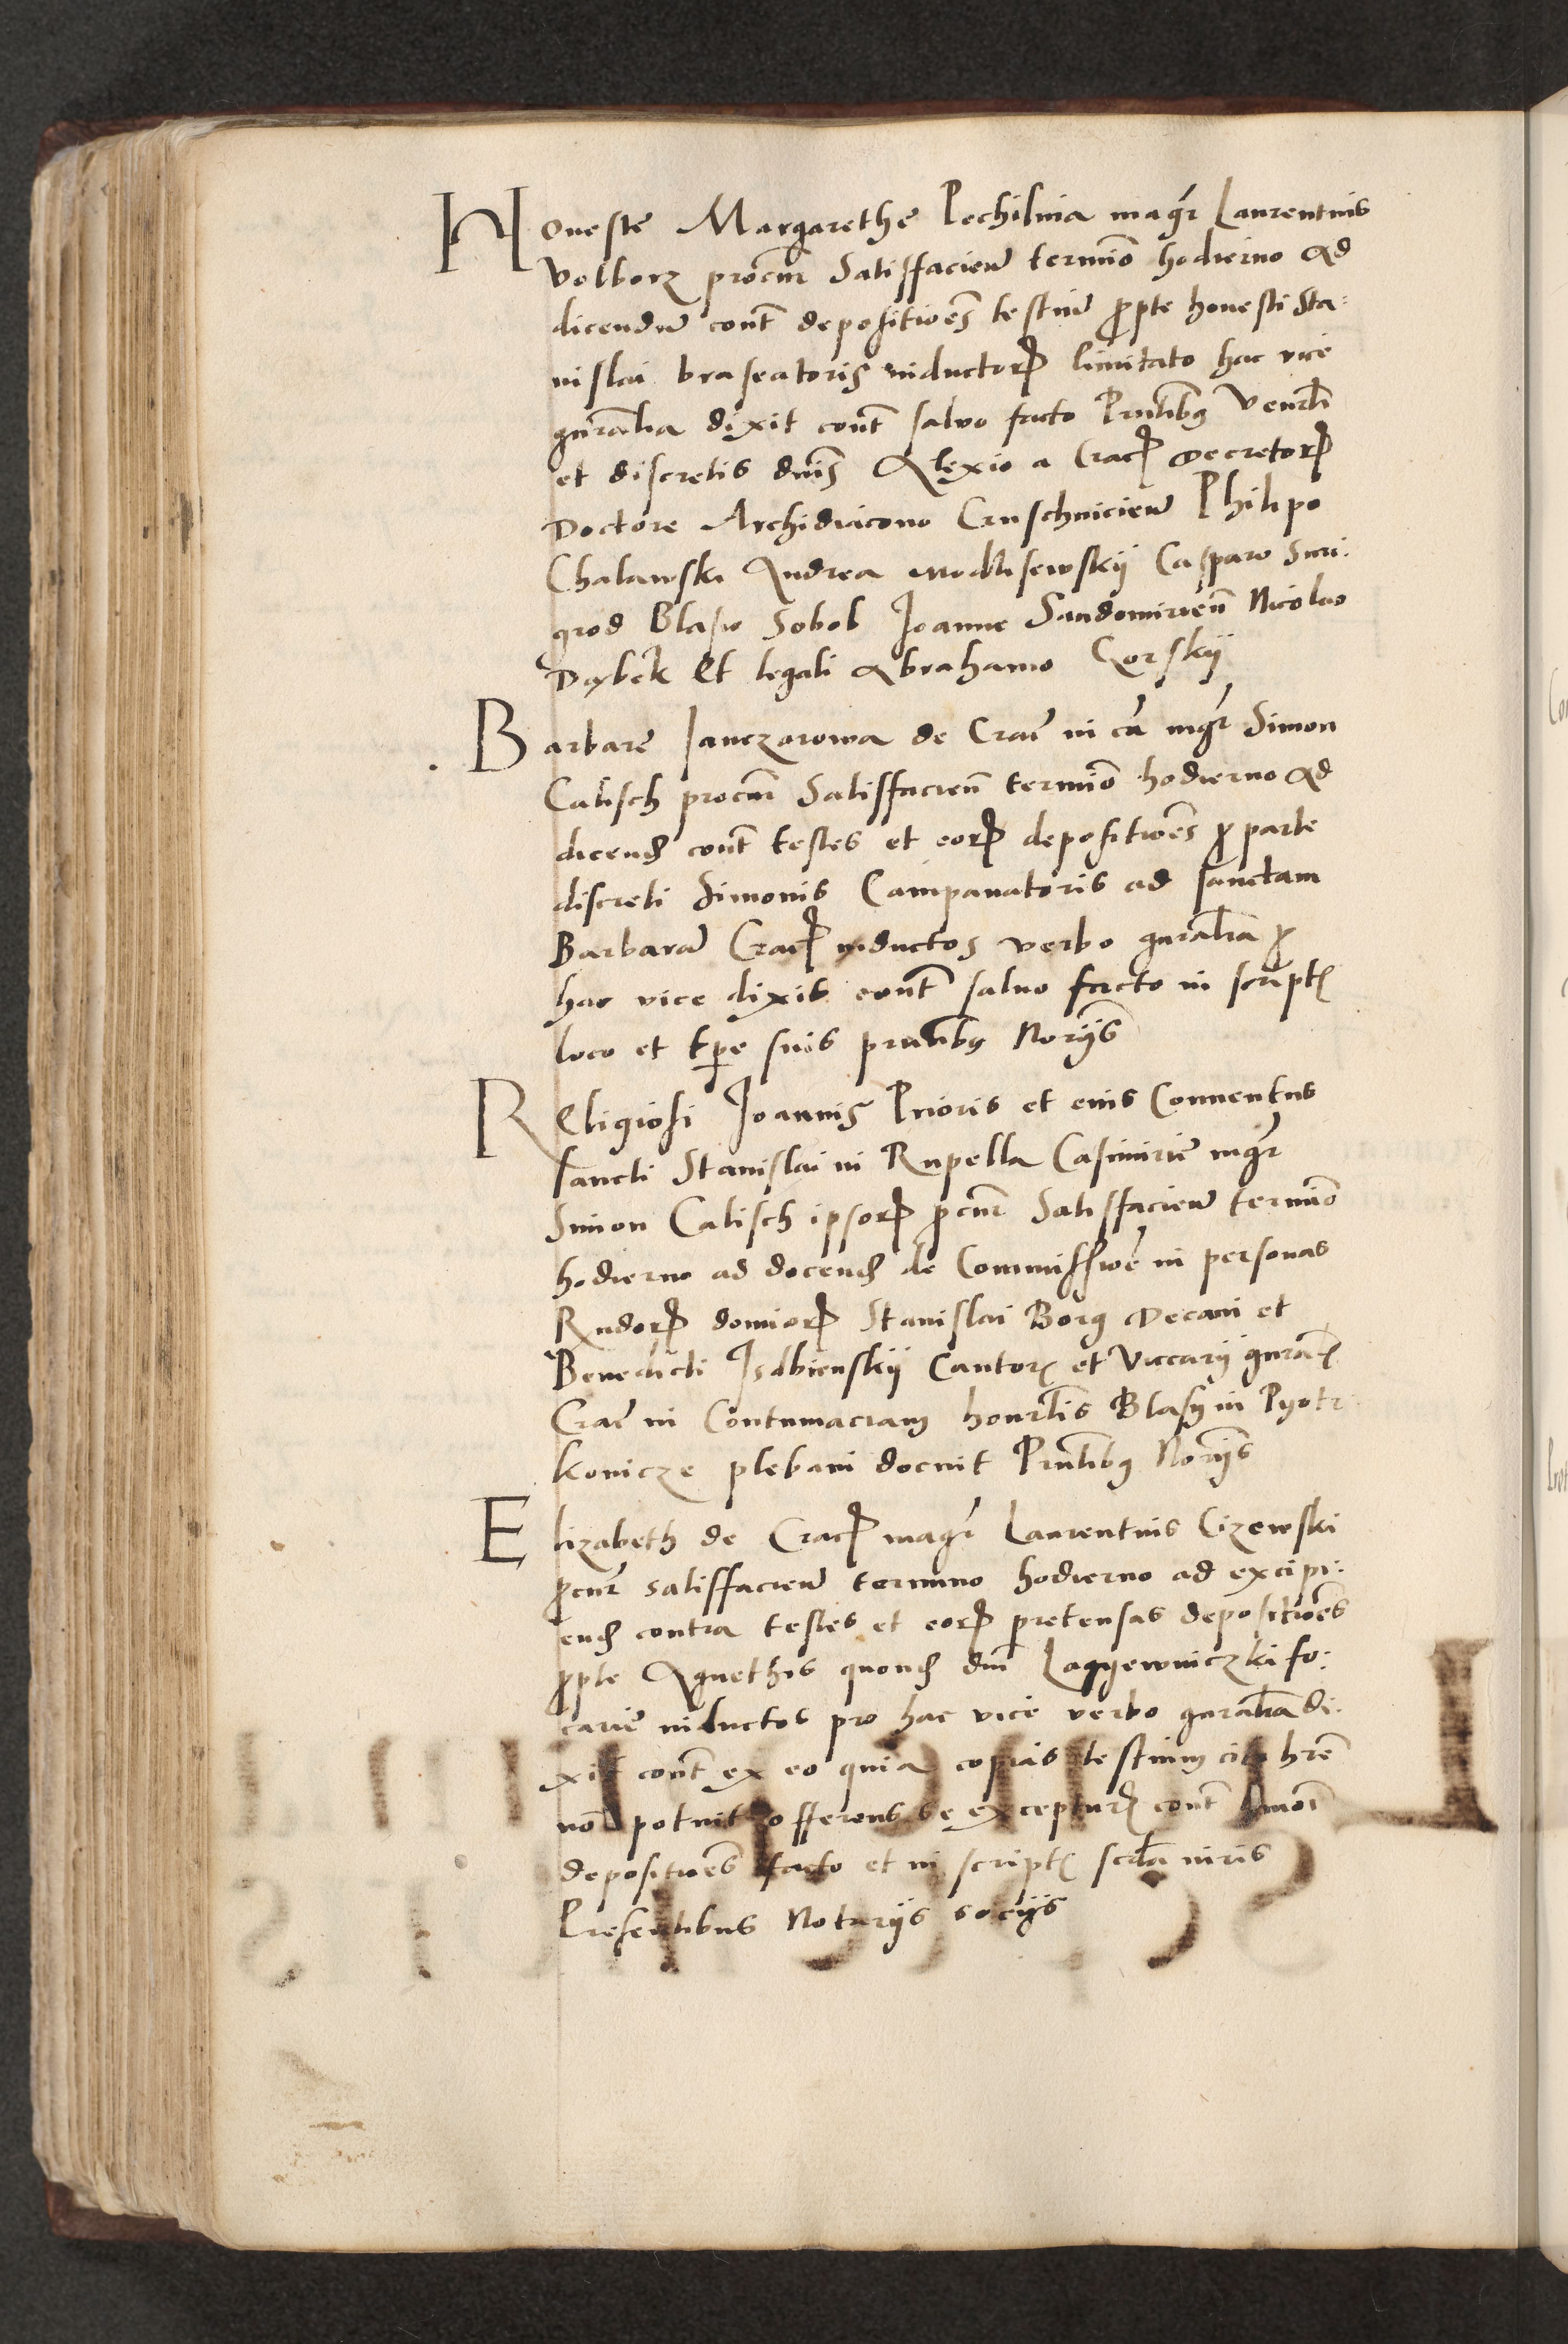 Honeste Margarethe Pechilnia magr Laurentius
Volborz procur Satisffacien termio hodierno Ad
dicendu cont depositioes testiu ppte honesti Sta:
nislai braseatoris inductor limitato hac vice
gnralia dixit cont salvo facto Prntibq Venrli
et discretis dnis Alexio a Crac Decretor
Doctore Archidiacono Cruschvicien Philipo
Chalawski Andrea modlisewskij Casparo Smi:
grod Blasio Sobol Joanne Sandomirien Nicolao
Dąbek Et legali Abrahamo Gorskij
Barbare Janczarowa de Crac in ca mgr Simon
Calisch procur Satisffacien termio hodierno Ad
dicend cont testes et eor depositioes p parte
discreti Simonis Campanatoris ad sanctam
Barbara Crac inductos verbo gnralia p
hac vice dixit cont salvo facto in script
loco et tpe suis prntibq Norijs
Religiosi Joannis Prioris et eius Conuentus
sancti Stanislai in Rupella Casimirie mgr
Simon Calisch ipsor pcur Satisffacien termio
hodierno ad docend de Commissioe in personas
Rndor domior Stanislai Borg Decani et
Benedicti Isdbienskij Cantor et Viccarij gnral
Crac in Contumaciam honrlis Blasij in Pyotr
konicze plebani docuit Prntibq Norijs
Elizabeth de Crac magr Laurentius Cizewski
pcur satisffacien termino hodierno ad excipi:
end contra testes et eor pretensas depositioes
ppte Agnethis quond dni Lagyewniczki fo:
carie inductos pro hac vice verbo gnralia di:
xit cont ex eo quia copias testium cito hre
no potuit offerens se exceptur cont
depositioes facto et in script scda iuris
Presentibus Notarijs socijs